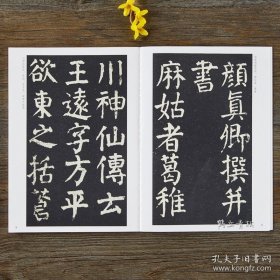 顏真卿撰并
書
麻姑者葛稚
川神仙傳云
王遠字方平
欲東之括蒼
孔夫子旧书网